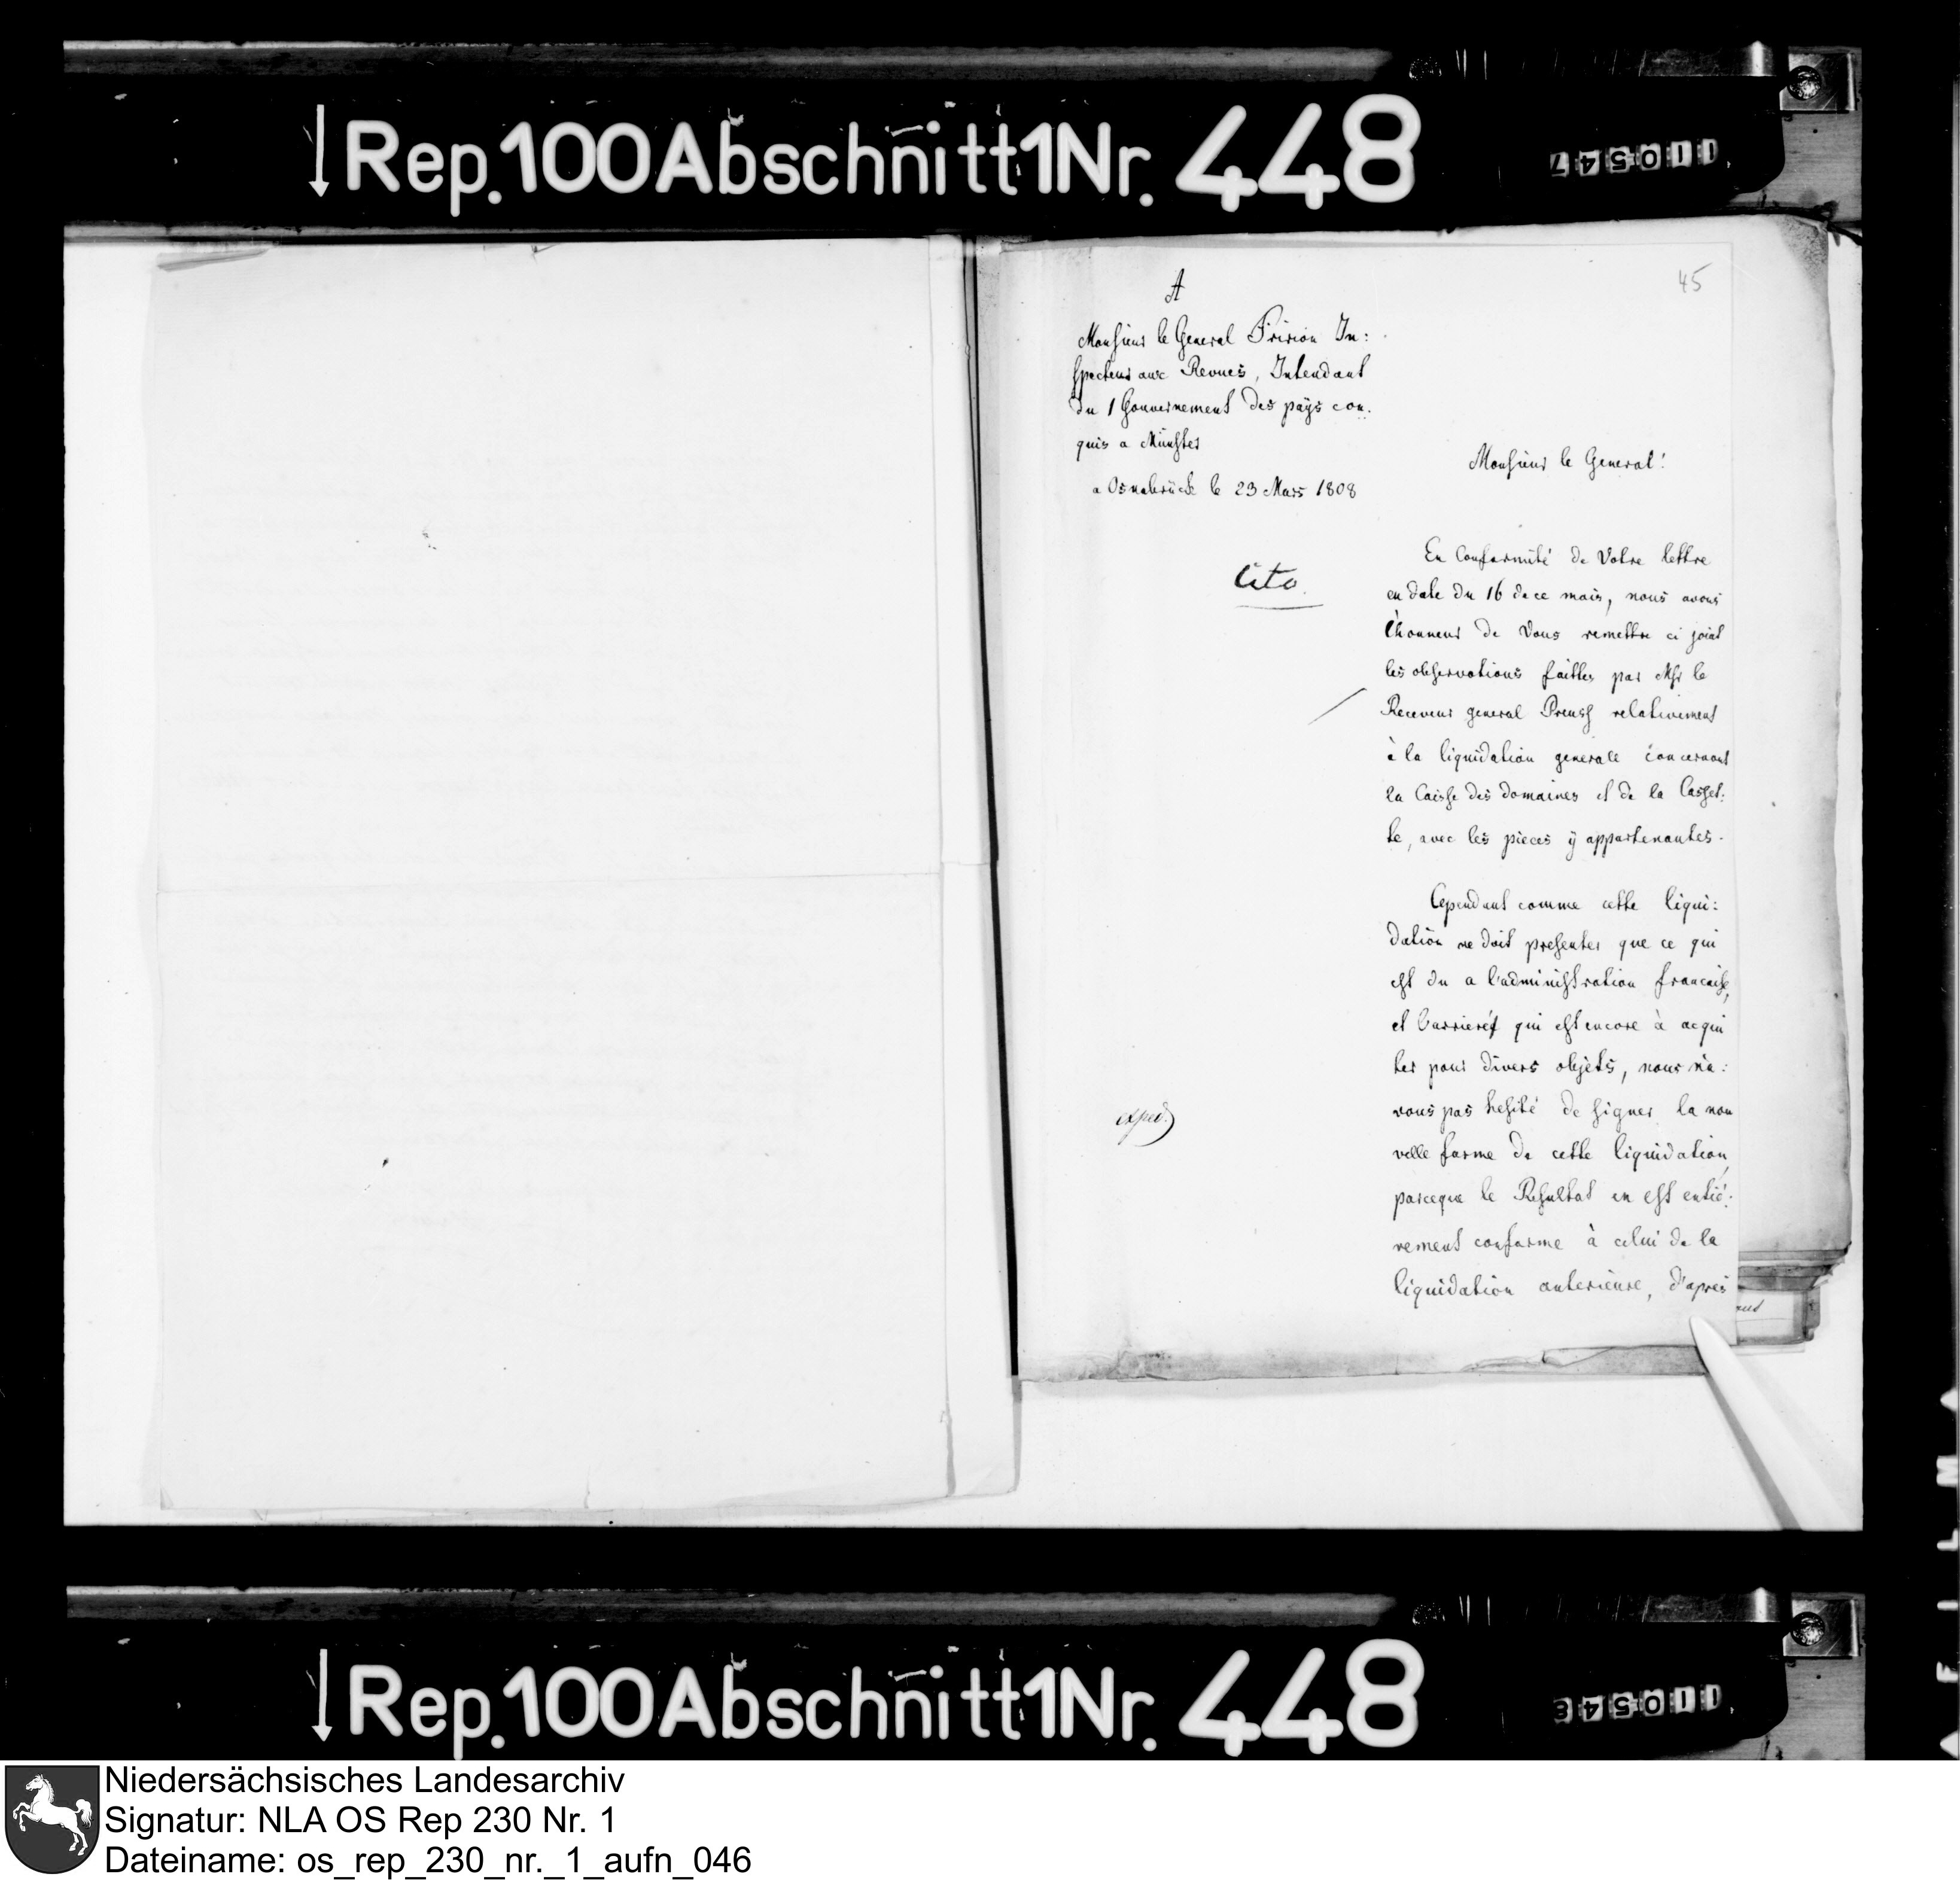 Rep.100Abschnitt1Nr. 448
110547
45
A
Monsieur le General Fririon In:
specteur aux Revues, Intendant
du 1 Gouvernement des païs con:
quis a Münster
a Osnabrück le 23 Mars 1808
Monsieur le General!
Cito.
En Conformité de Votre lettre
en date du 16 de ce mois, nous avons
l'honneur de Vous remettre ci joint
les observations faittes par Msr le
Receveur general Preuss relativement
à la liquidation generale concernant
la Caisse des domaines et de la Casset:
te, avec les pieces ÿ appartenantes.
Cependant comme cette liqui:
dation ne doit presenter que ce qui
est du a l'administration francaise,
et l'arrieréz qui est encore à acqui
ter pour divers objèts, nous n'a:
vons pas hesité de signer la nou
velle forme de cette liquidation,
parceque le Resultat en est entié:
rement conforme à celui de la
liquidation anterieure, d'aprés
exped.
Rep.100Abschnitt1Nr. 448
Niedersächsisches Landesarchiv
Signatur: NLA OS Rep 230 Nr. 1
Dateiname: os_rep_230_nr._1_aufn_046